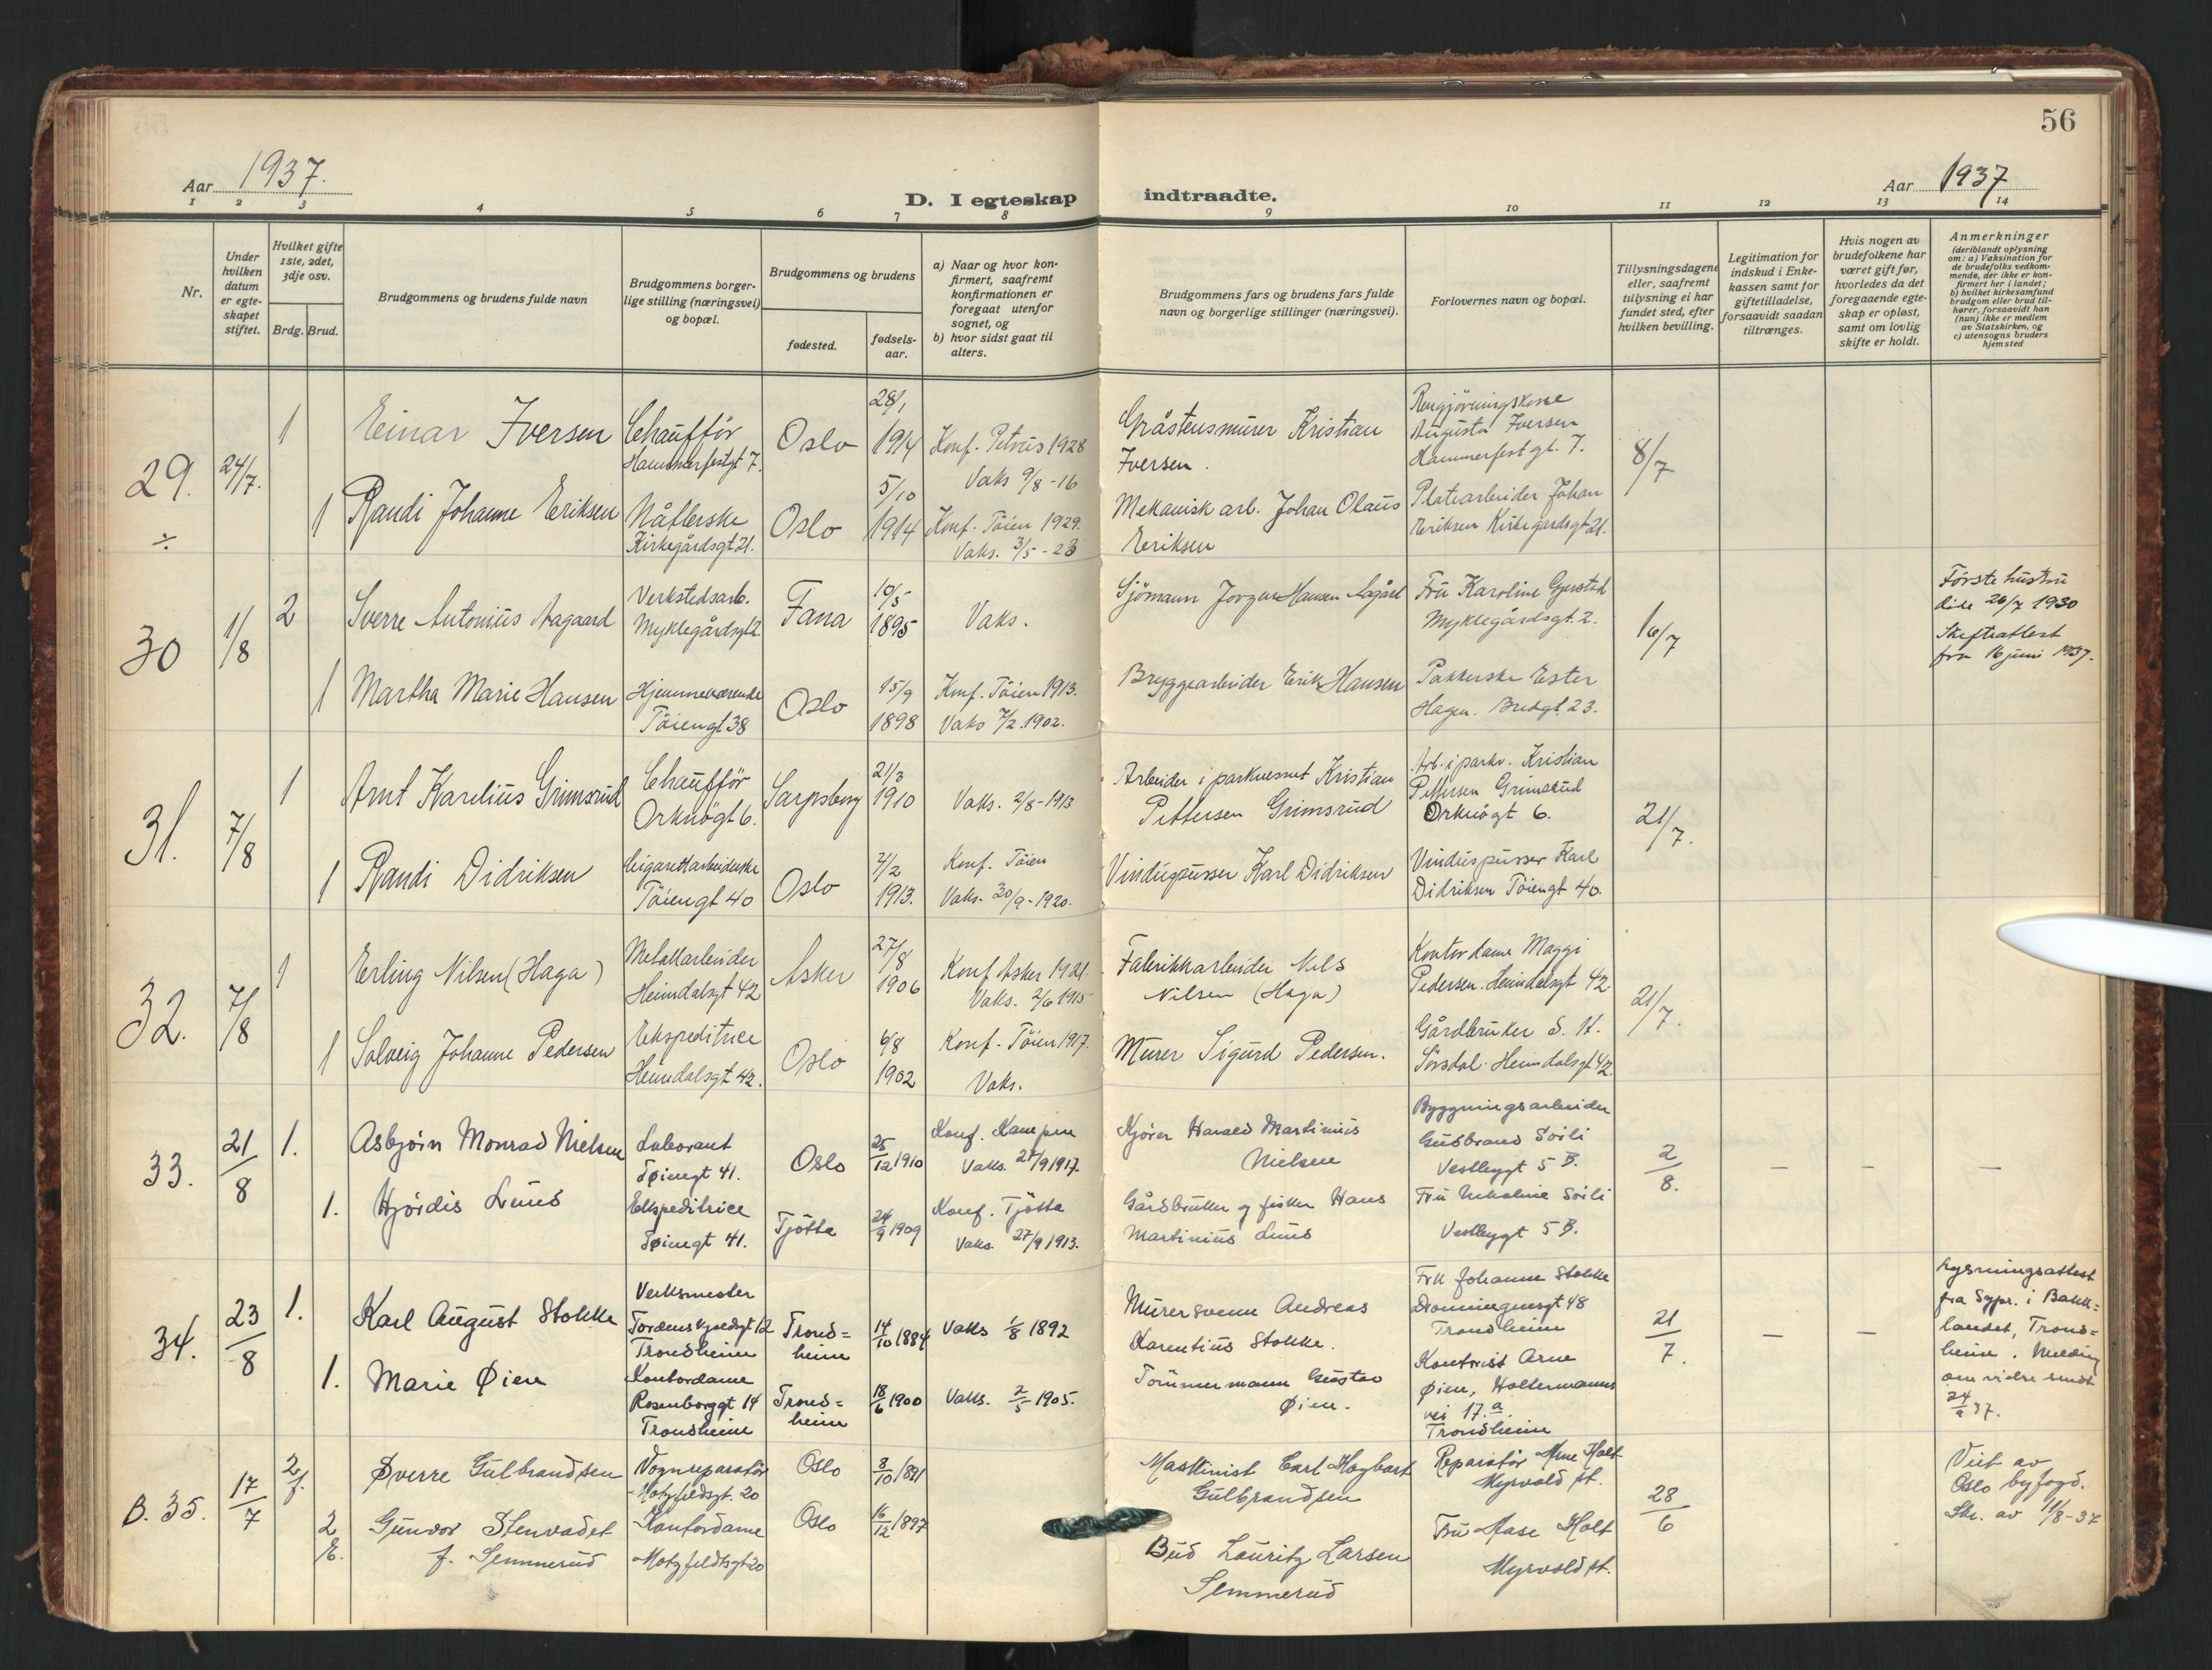 56
Aar 1937.
D. I egteskap indtraadte.
Aar 1937
1 2 3 4 5 6 7 8 9 10 11 12 13 14
Nr.
Under hvilken datum er egteskapet stiftet.
Hvilket gifte 1ste, 2det, 3dje osv.
Brdg. Brud.
Brudgommens og brudens fulde navn
Brudgommens borgerlige stilling (næringsvei) og bopæl.
Brudgommens og brudens
fødested.
fødselsaar.
a) Naar og hvor konfirmert, saafremt konfirmationen er foregaat utenfor sognet, og
b) hvor sidst gaat til alters.
Brudgommens fars og brudens fars fulde navn og borgerlige stillinger (næringsvei).
Forlovernes navn og bopæl.
Tillysningsdagene eller, saafremt tillysning ei har fundet sted, efter hvilken bevilling.
Legitimation for indskud i Enkekassen samt for giftetilladelse, forsaavidt saadan tiltrænges.
Hvis nogen av brudefolkene har været gift før, hvorledes da det foregaaende egteskap er opløst, samt om lovlig skifte er holdt.
Anmerkninger
(deriblandt oplysning om: a) Vaksination for de brudefolks vedkommende, der ikke er konfirmert her i landet; b) hvilket kirkesamfund brudgom eller brud tilhører, forsaavidt han (hun) ikke er medlem av Statskirken, og c) utensogns bruders hjemsted
29. 24/7. 1 Einar Iversen
Chaufför
Hammerfestgt 7.
Oslo
28/1
1914
Konf. Petrus 1928
Vaks 9/8-16
Gråstensmurer Kristian
Iversen.
Rengjöringskone
Augusta Iversen
Hammerfestgt. 7.
8/7
÷
1 Randi Johanne Eriksen
Nåtlerske
Kirkegårdsgt 21.
Oslo
5/10
1914
Konf. Töien 1929.
Vaks. 3/5-23
Mekanisk arb. Johan Olaus
Eriksen
Platearbeider Johan
Eriksen Kirkegardsgt 21.
30 1/8 2 Sverre Antonius Aagaard
Verkstedsarb.
Myklegårdsgt 2.
Fana
10/5
1895
Vaks.
Sjömann Jorgen Hansen Aagård
Fru Karoline Gjerstad
Myklegårdsgt. 2.
16/7
Förste hustru
död 26/7 1930
Skifteattest
fra 16 juni 1937.
1 Martha Marie Hansen
Hjemmeværende
Töiengt 38
Oslo
15/9
1898
Konf. Töien 1913.
Vaks 7/2. 1902.
Bryggearbeider Erik Hansen
Pakkerske Ester
Hagen. Bredgt. 23.
31. 7/8 1 Arnt Karelius Grimsrud
Chaufför
Orknögt 6.
Sarpsborg
21/3
1910
Vaks. 2/8-1913
Arbeider i parkvesnet Kristian
Pettersen Grimsrud
Arb. i parkv. Kristian
Pettersen Grimsrud
Orknögt 6.
21/7.
1 Randi Didriksen
Cigarettarbeiderske
Töiengt 40
Oslo
7/2
1913.
Konf. Töien
Vaks. 30/9-1920.
Vinduspusser Karl Didriksen
Vinduspusser Karl
Didriksen Töiengt 40.
32. 7/8 1 Erling Nilsen (Haga)
Metallarbeider
Heimdalsgt 42
Asker
27/8
1906
Konf Asker 1921.
Vaks. 2/6 1915
Fabrikkarbeider Nils
Nilsen (Haga)
Kontordame Maggi
Pedersen. Heimdalsgt 42
21/7.
1 Solveig Johanne Pedersen
Ekspeditrice
Heimdalsgt 42.
Oslo
6/8
1902
Konf. Töien 1917.
Vaks.
Murer Sigurd Pedersen.
Gårdbruker S. H.
Sörsdal. Heimdalsgt 42.
33. 21/8 1. Asbjörn Monrad Nielsen
Laborant
Tøiengt 41.
Oslo
25/12 1910
Konf. Kampen
Vaks. 27/9 1917.
Kjörer Harald Martinius
Nielsen
Byggningsarbeider
Gudbrand Soili
Vestbygt 5 B.
2/8.
— — —
1. Hjördis Lund
Ekspeditrice
Tøiengt 41.
Tjötta
24/9 1909
Konf. Tjötta
Vaks. 27/9 1913.
Gårdbruker og fisker Hans
Martinius Lund
Fru Soili
Vestbygt 5 B.
34. 23/8 1. Karl August Stokke
Verksmester
Tordenskjoldsgt 12
Trondheim
Trond=
heim
14/10 1884
Vaks 1/8 1892
Murersvenn Andreas
Karentius Stokke.
Frk Johanne Stokke
Dronningensgt 48
Trondheim
21/7.
— —
Lysningsattest
fra Sgpr. i Bakk=
landet, Trond=
heim. Melding
om vielse sendt
24/8 37.
1. Marie Øien
Kontordame
Rosenborggt 14
Trondheim
Trond=
heim
18/6 1900
Vaks. 2/5 1905.
Tömmermann Gustav
Øien.
Kontorist Arne
Øien, Holtermanns
vei 17.a
Trondheim
B. 35. 17/7 2 f. Sverre Gulbrandsen
Vognreparatør
Motzfeldtsgt. 20
Oslo
8/10 1891
Maskinist Carl Hagbart
Gulbrandsen
Reparatør Arne Holt
Myrvold st.
28/6
Viet av
Oslo byfogd.
Skr. av 11/8-37
2 E. Gunvor Stenvadet
f. Semmerud
Kontordame
Motzfeldtsgt 20
Oslo
16/12 1897
Bud Lauritz Larsen
Semmerud
Fru Aase Holt
Myrvold st.